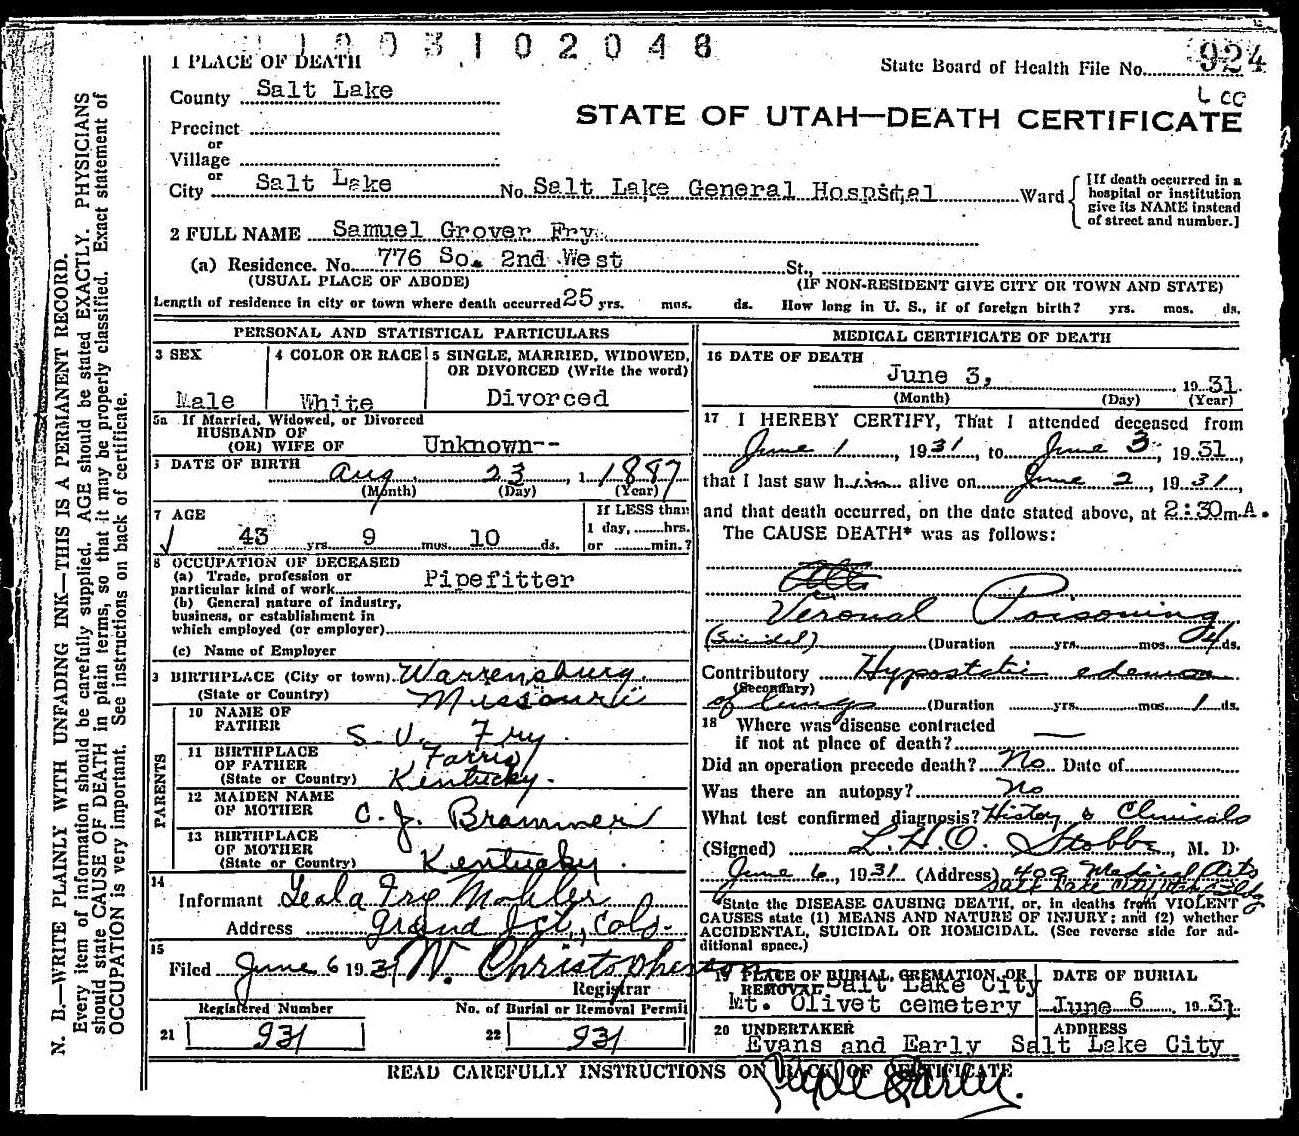 1003102048
924
1 PLACE OF DEATH
State Board of Health File No.
County Salt Lake
STATE OF UTAH—DEATH CERTIFICATE
Precinct
or
Village
or
City Salt Lake No. Salt Lake General Hospital Ward
[If death occurred in a
hospital or institution
give its NAME instead
of street and number.]
2 FULL NAME Samuel Grover Fry
(a) Residence. No. 776 So. 2nd West St.,
(USUAL PLACE OF ABODE) (IF NON-RESIDENT GIVE CITY OR TOWN AND STATE)
Length of residence in city or town where death occurred 25 yrs. mos. ds. How long in U. S., if of foreign birth? yrs. mos. ds.
PERSONAL AND STATISTICAL PARTICULARS
3 SEX
Male
4 COLOR OR RACE
White
5 SINGLE, MARRIED, WIDOWED,
OR DIVORCED (Write the word)
Divorced
5a If Married, Widowed, or Divorced
HUSBAND OF
(OR) WIFE OF Unknown--
DATE OF BIRTH Aug 23, 1 1887
(Month) (Day) (Year)
7 AGE
43 yrs. 9 mos. 10 ds.
If LESS than
1 day, hrs.
or min.?
8 OCCUPATION OF DECEASED
(a) Trade, profession or
particular kind of work Pipefitter
(b) General nature of industry,
business, or establishment in
which employed (or employer)
(c) Name of Employer
9 BIRTHPLACE (City or town) Warrensburg
(State or Country) Missouri
PARENTS
10 NAME OF
FATHER S. V. Fry.
11 BIRTHPLACE
OF FATHER
(State or Country) Kentucky.
12 MAIDEN NAME
OF MOTHER C. J. Brammer
13 BIRTHPLACE
OF MOTHER
(State or Country) Kentucky.
14
Informant Leala Fry Mohler
Address Grand Jct., Colo.
15
Filed June 6 1931 W. Christopherson
Registrar
Registered Number No. of Burial or Removal Permit
21 931 22 931
MEDICAL CERTIFICATE OF DEATH
16 DATE OF DEATH
June 3, 1931.
(Month) (Day) (Year)
17 I HEREBY CERTIFY, That I attended deceased from
June 1, 1931, to June 3, 1931,
that I last saw him alive on June 2, 1931,
and that death occurred, on the date stated above, at 2:30m A.
The CAUSE DEATH* was as follows:
Veronal Poisoning
(Suicidal) (Duration yrs. mos. 4 ds.
Contributory Hypostatic edema
(Secondary)
of lungs (Duration yrs. mos. 1 ds.
18 Where was disease contracted
if not at place of death? —
Did an operation precede death? No Date of
Was there an autopsy? No
What test confirmed diagnosis? History & Clinicals
(Signed) L. H. O. Stobbe, M. D.
June 6, 1931 (Address) 409 Medical Arts
Salt Lake City Utah Bldg
*State the DISEASE CAUSING DEATH, or, in deaths from VIOLENT
CAUSES state (1) MEANS AND NATURE OF INJURY; and (2) whether
ACCIDENTAL, SUICIDAL OR HOMICIDAL. (See reverse side for ad-
ditional space.)
19 PLACE OF BURIAL, CREMATION, OR
REMOVAL Salt Lake City
Mt. Olivet cemetery
DATE OF BURIAL
June 6, 1931
20 UNDERTAKER ADDRESS
Evans and Early Salt Lake City
READ CAREFULLY INSTRUCTIONS ON BACK OF CERTIFICATE
N. B.—WRITE PLAINLY WITH UNFADING INK—THIS IS A PERMANENT RECORD.
Every item of information should be carefully supplied. AGE should be stated EXACTLY. PHYSICIANS
should state CAUSE OF DEATH in plain terms, so that it may be properly classified. Exact statement of
OCCUPATION is very important. See instructions on back of certificate.